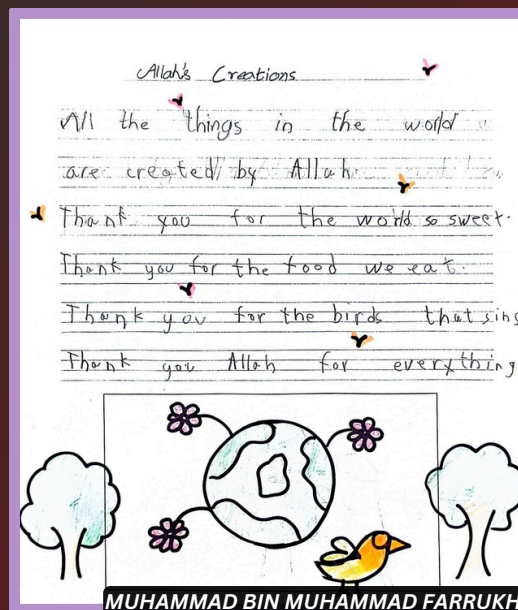 Allah's Creations
All the things in the world
are created by Allah
Thank you for the world so sweet.
Thank you for the food we eat.
Thank you for the birds that sing
Thank you Allah for everything
MUHAMMAD BIN MUHAMMAD FARRUKH